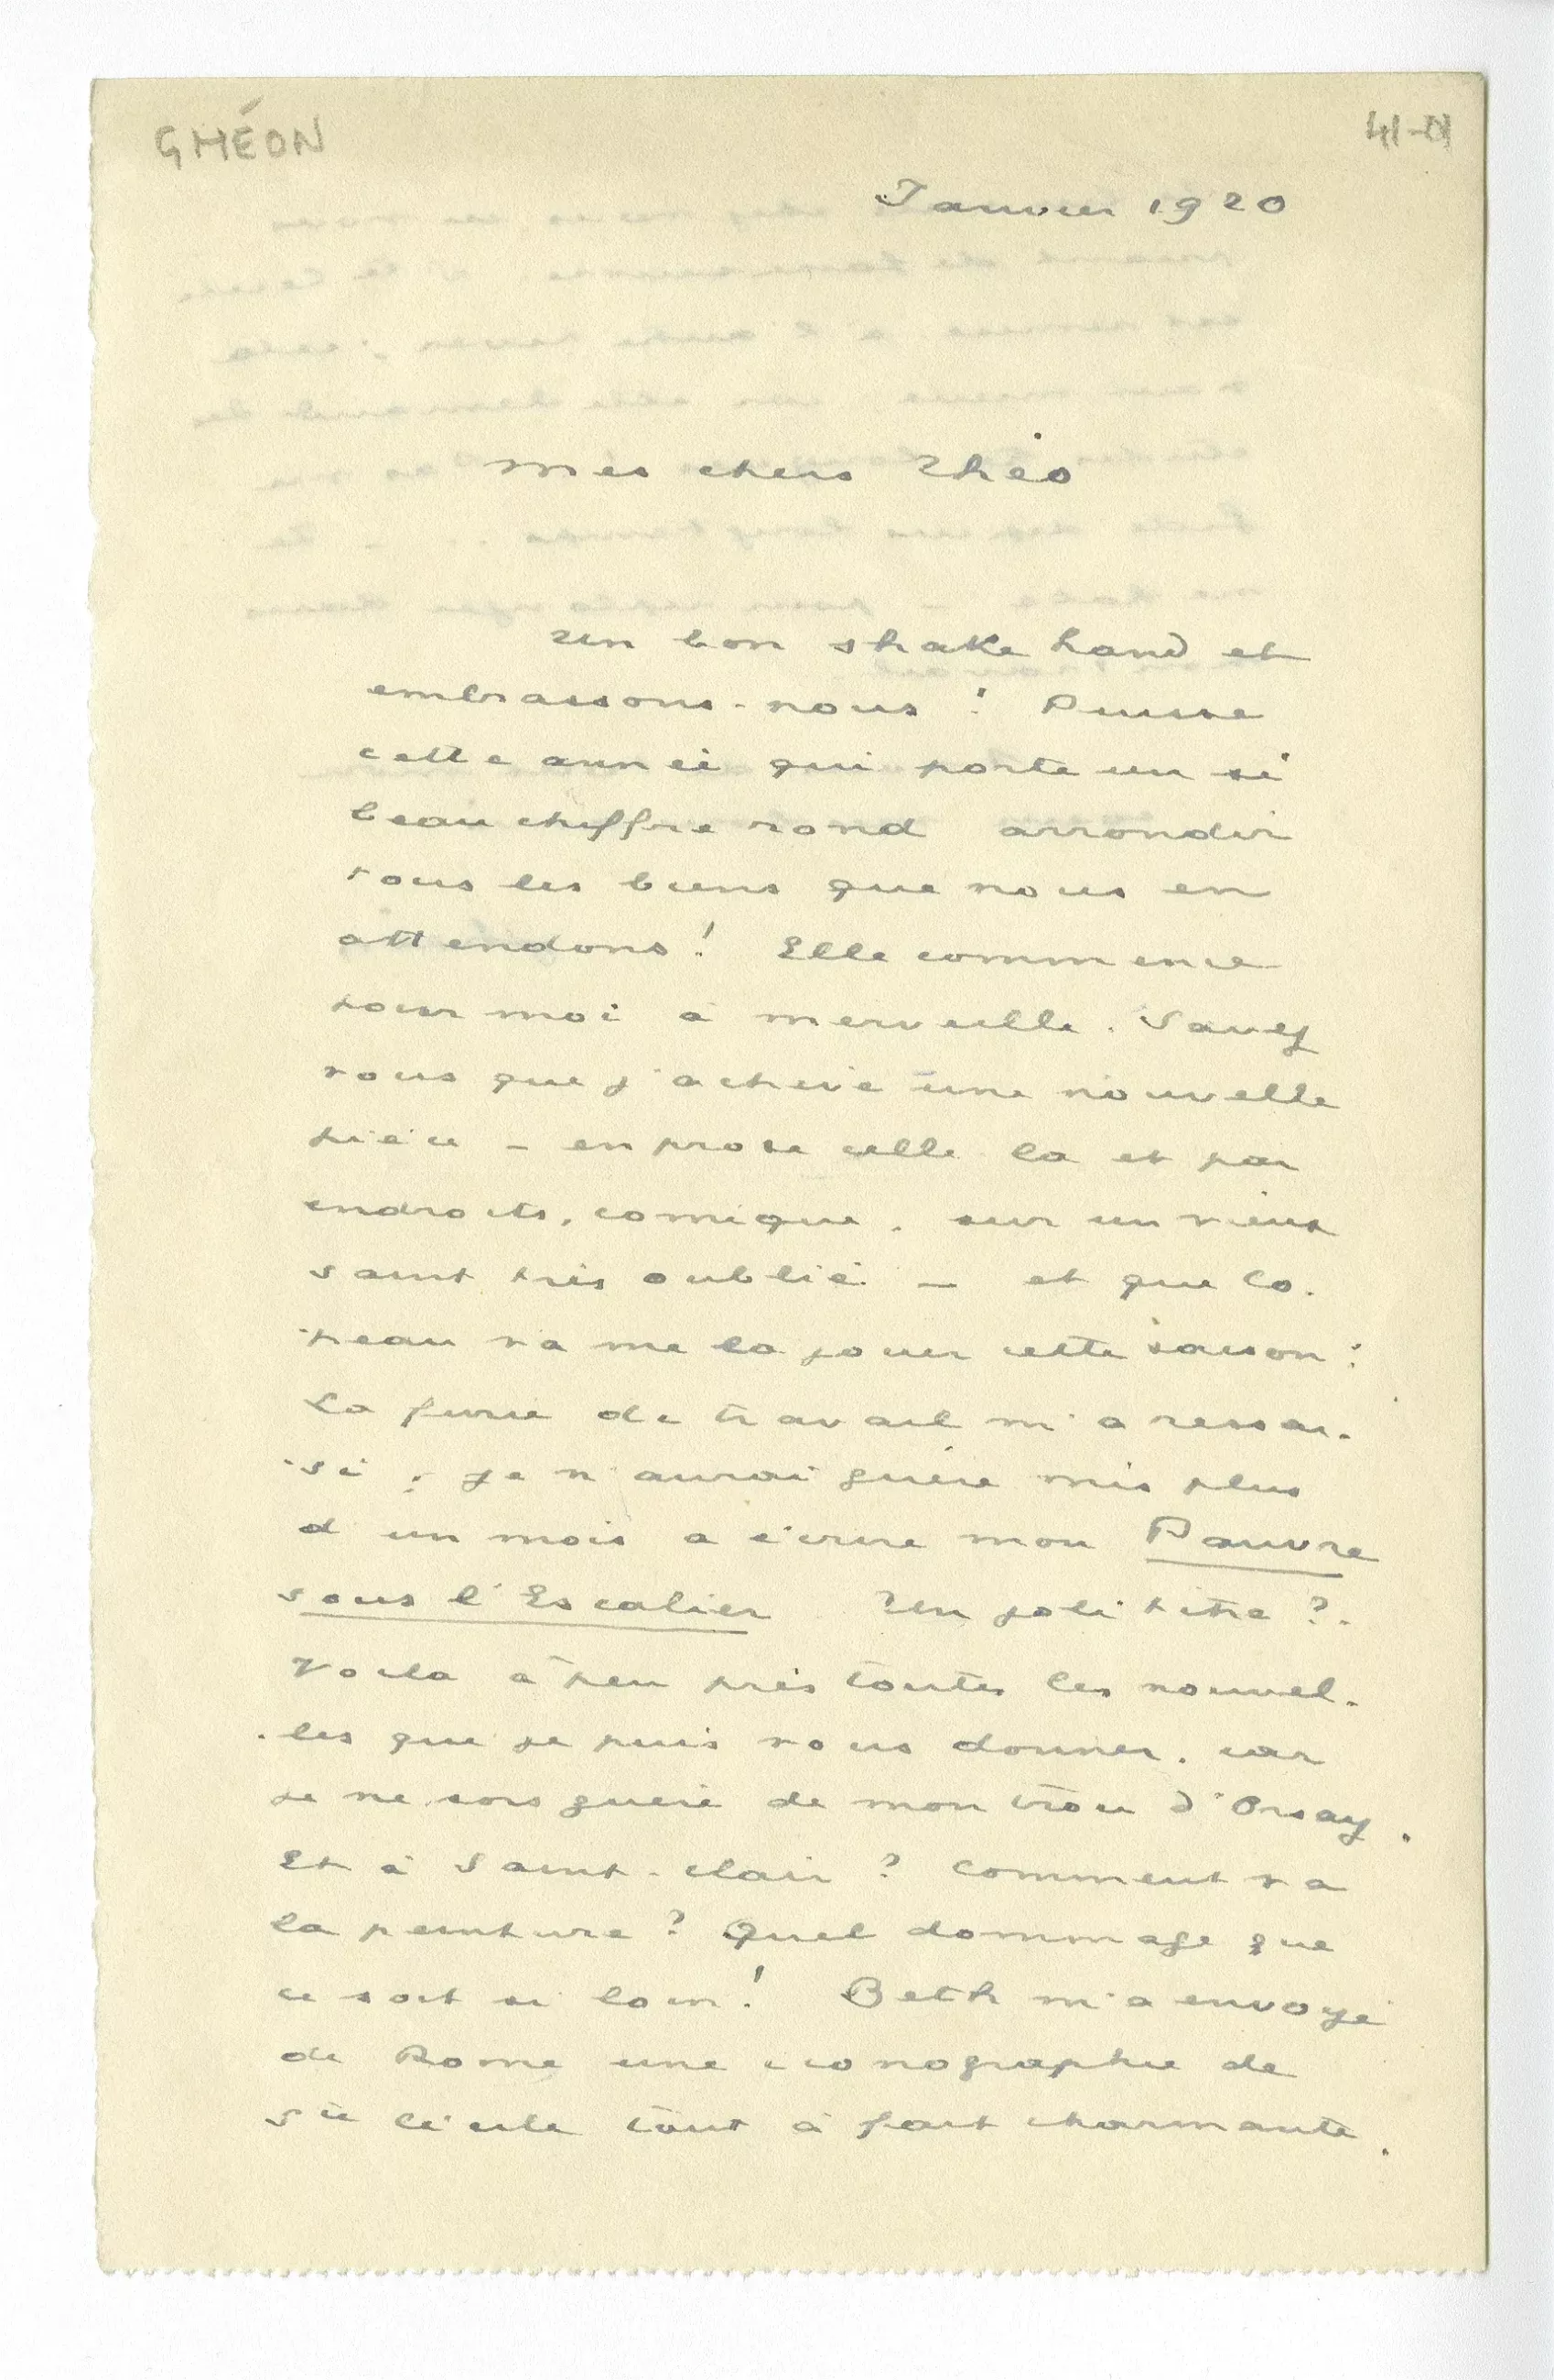 GHÉON
41-01
Janvier 1920
Mes chers Théo
Un bon shake hand et
embrassons-nous ! Puisse
cette année qui porte un si
beau chiffre rond arrondir
tous les biens que nous en
attendons ! Elle commence
pour moi à merveille. Savez
vous que j'achève une nouvelle
pièce — en prose celle là et par
endroits, comique, sur un vieux
saint très oublié — et que Co-
peau va me la jouer cette saison :
La furie de travail m'a ressai-
si ; je n'aurai guère mis plus
d'un mois à écrire mon Pauvre
sous l'Escalier Un joli titre ?
Voila à peu près toutes les nouvel-
les que je puis vous donner, car
je ne sors guère de mon trou d'Orsay.
Et à Saint-Clair ? Comment va
la peinture ? Quel dommage que
ce soit si loin ! Beth m'a envoyé
de Rome une iconographie de
Ste Cécile tout à fait charmante.